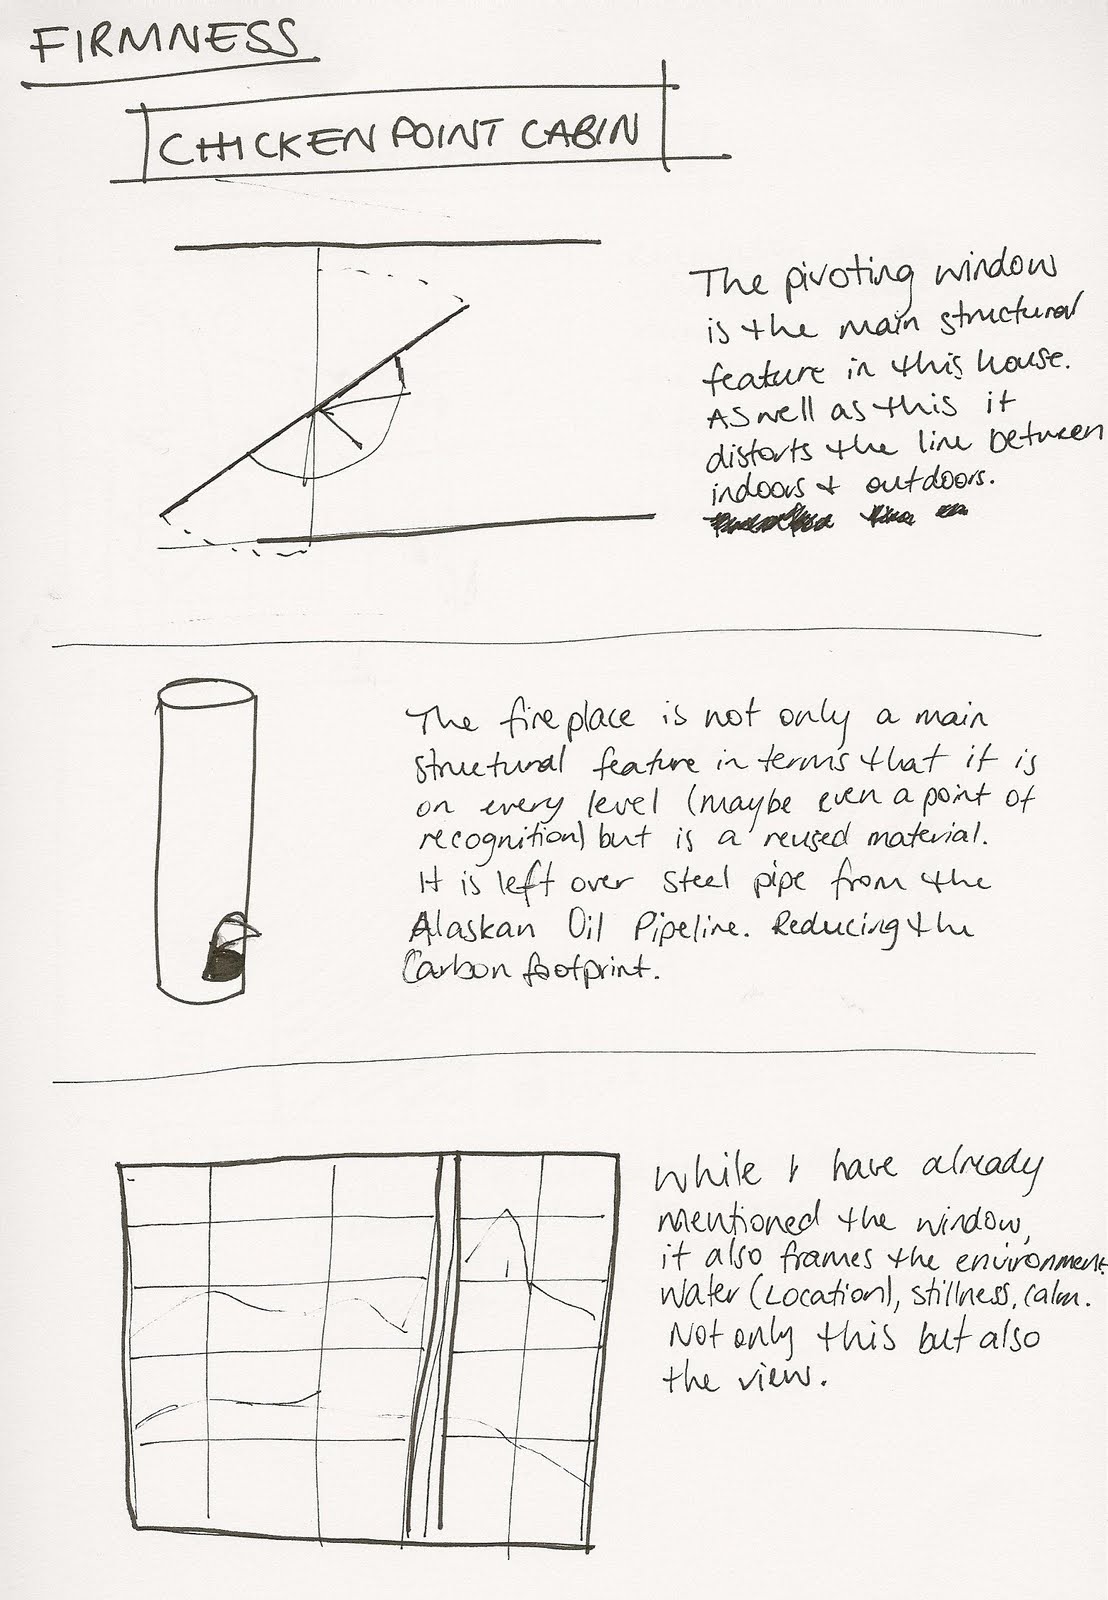 FIRMNESS
CHICKEN POINT CABIN
The pivoting window
is the main structural
feature in this house.
As well as this it
distorts the line between
indoors + outdoors.
The fireplace is not only a main
structural feature in terms that it is
on every level (maybe even a point of
recognition) but is a reused material.
It is left over steel pipe from the
Alaskan Oil Pipeline. Reducing the
Carbon footprint.
While I have already
mentioned the window,
it also frames the environment
Water (Location), stillness, calm.
Not only this but also
the view.